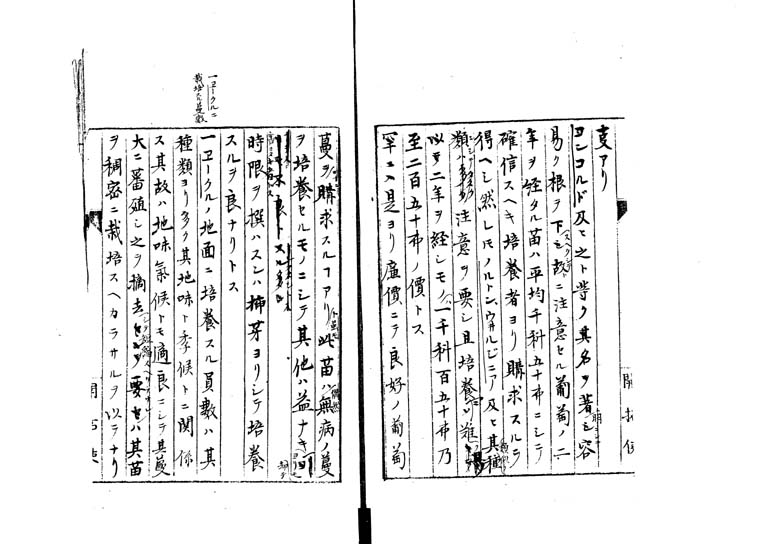 叓アリ
コンコルド及ヒ之ト等ク其名ヲ著シ容
易ク根ヲ下ス故ニ注意セル葡萄ノ二
年ヲ経タル苗ハ平均千科五十弗ニシテ
確信スヘキ培養者ヨリ購求スルヲ
得ヘシ然レモノルトン、ウィルジニア及ヒ其種
類ハ注意ヲ要シ且培養シ難
以テ二年ヲ経シモノ一千科百五十弗乃
至二百五十弗ノ價トス
罕ニハ是ヨリ廉價ニテ良好ノ葡萄
開拓使
一ヱークルニ
栽培スル蔓数
蔓ヲ購求スルアリ此苗ハ無病ノ蔓
ヲ培養セルモノニシテ其他ハ益ナキ
時限ヲ撰ハスンハ挿芽ヨリシテ培養
スルヲ良ナリトス
一ヱークルノ地面ニ培養スル員數ハ其
種類ヨリ多ク其地味ト季候トニ関係
ス其故ハ地味氣候トモ適良ニシテ其蔓
大ニ蕃殖シ之ヲ摘去 要セハ其苗
ヲ稠密ニ栽培スヘカラサルヲ以テナリ
開拓使